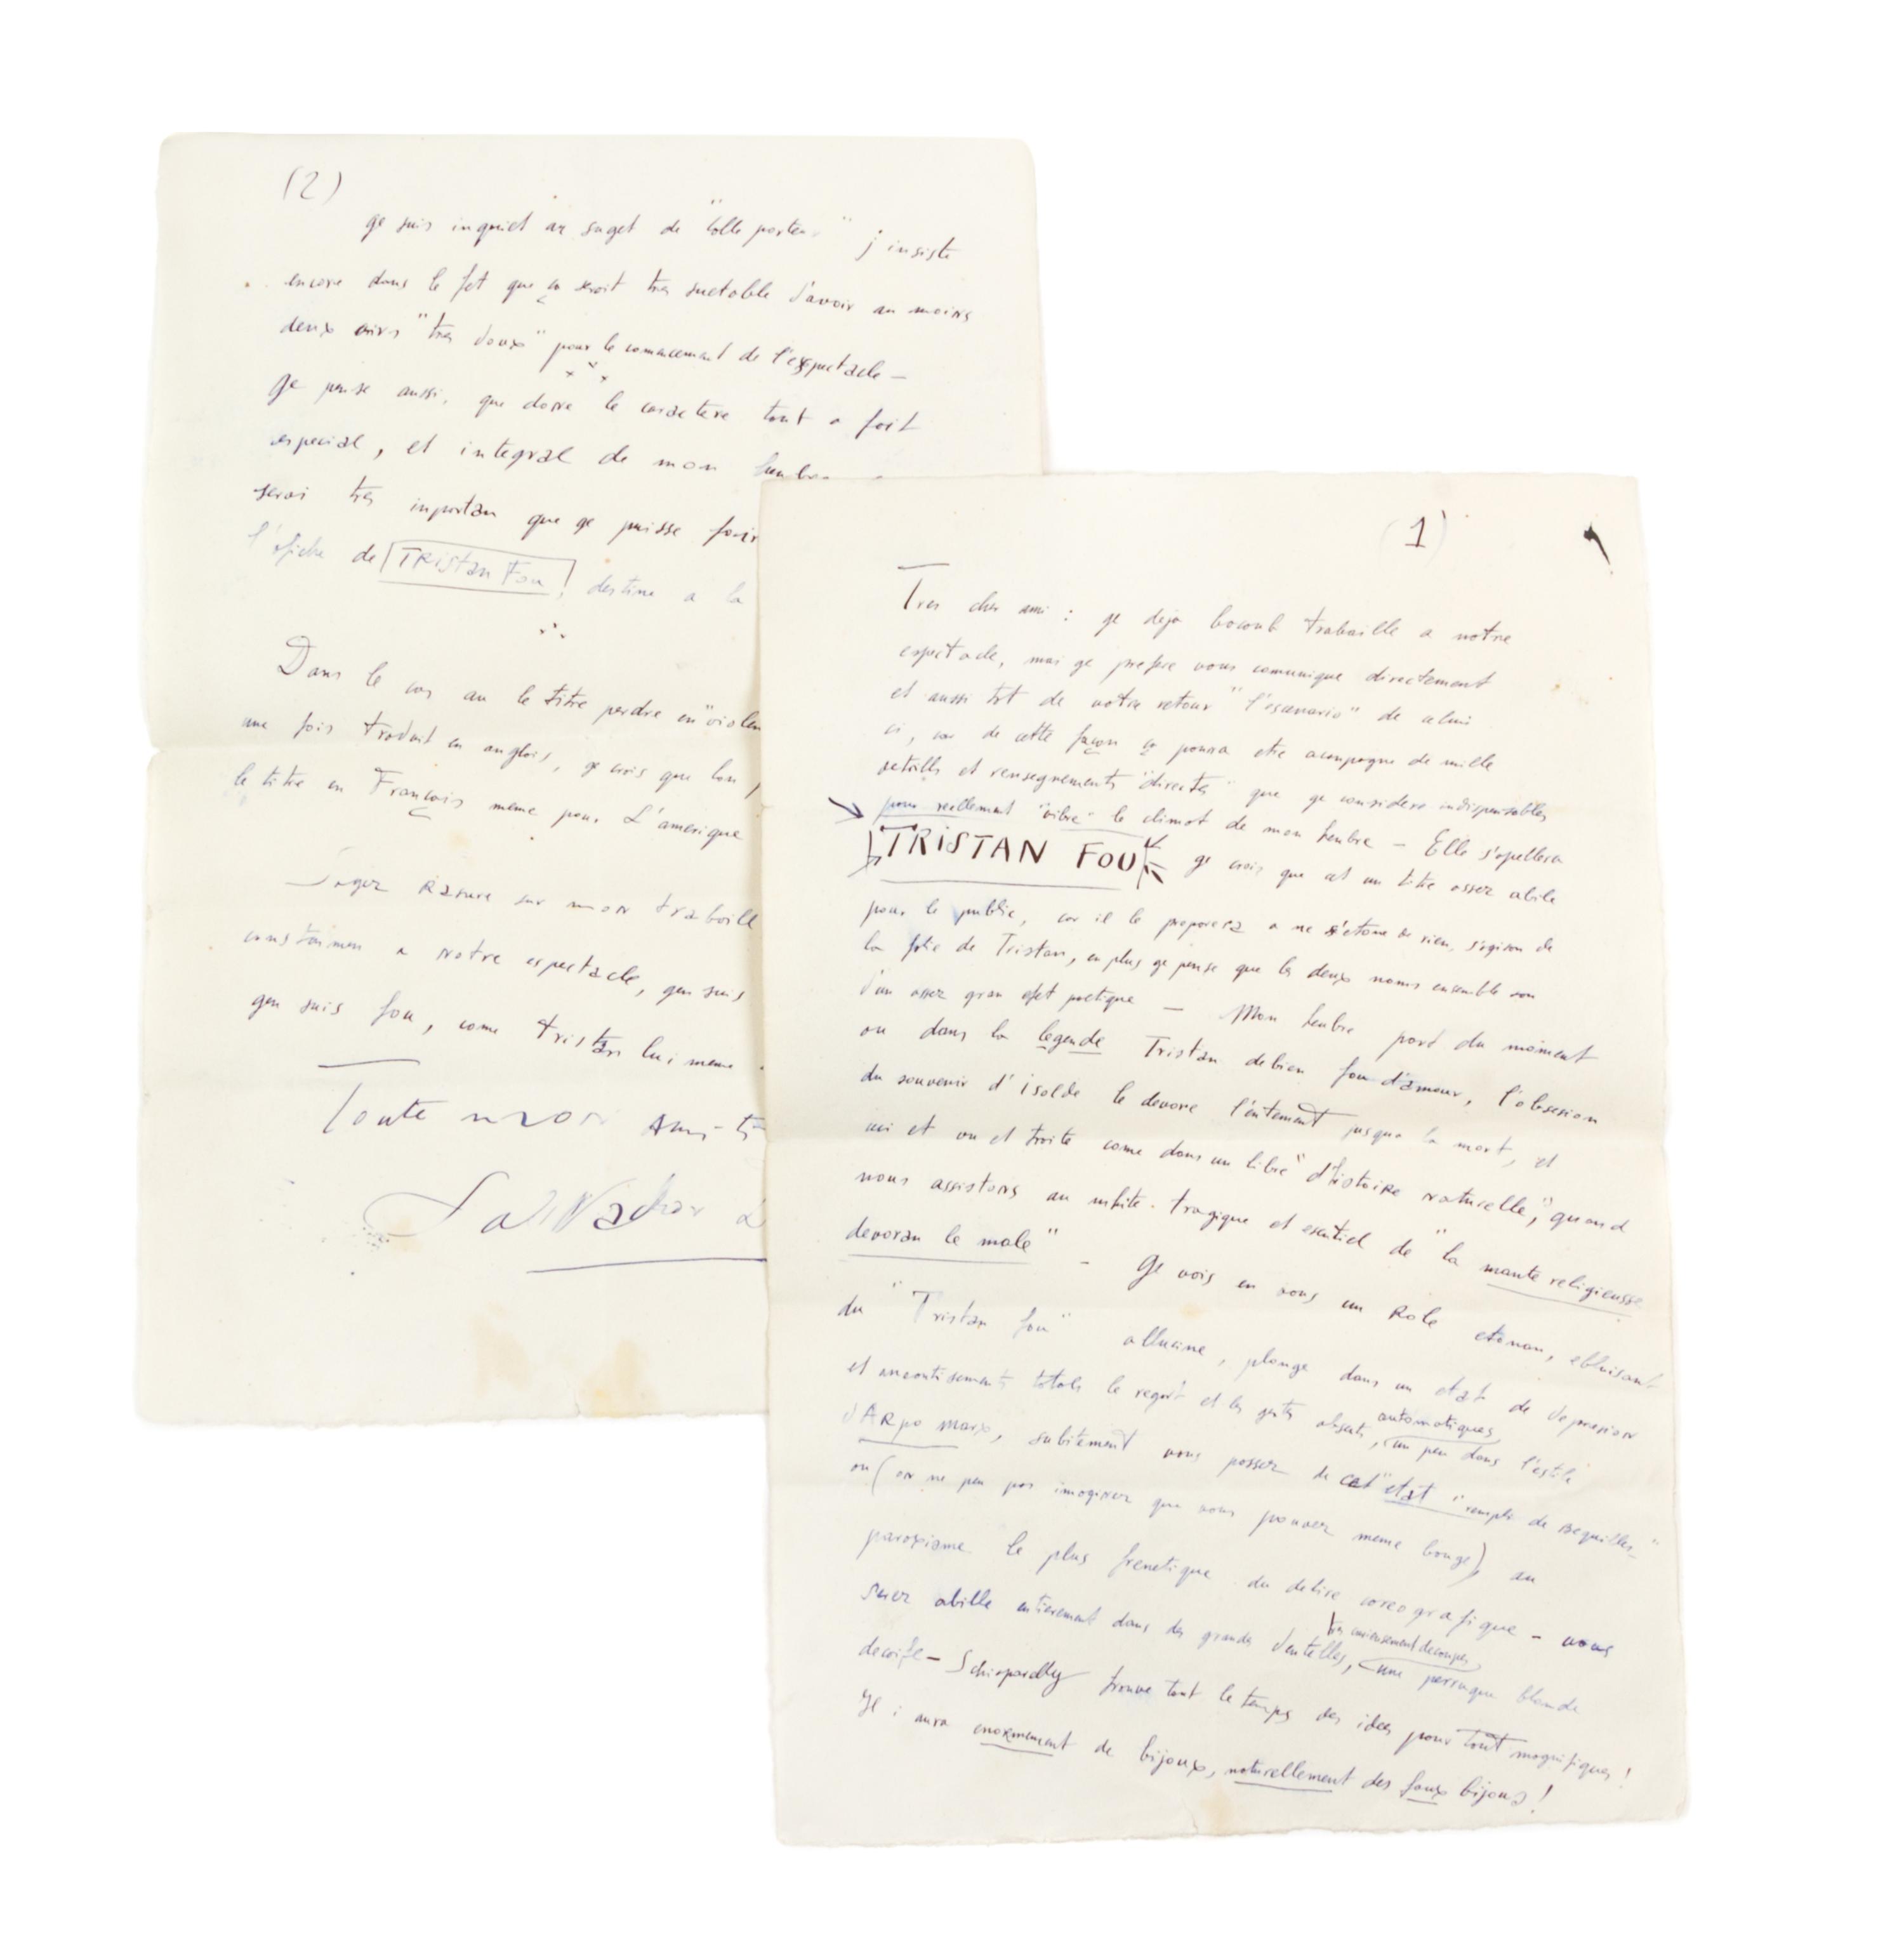 (1)
Tres cher ami : ge deja bocoub trabaille a notre
espectacle, mai ge prefere vous comunique directement
et aussi tot de votre retour "l'escenario" de celui
ci, car de cette façon ça pourra etre acompagne de mille
detalls et rensegnements "directs" que ge considere indispensables
pour reellement "vibre" le climat de mon heubre – Elle s'apellera
TRISTAN FOU ge crois que cet un titre assez abile
pour le public, car il le preparera a ne s'etone de rien, s'agison de
la folie de Tristan, en plus ge pense que les deux noms ensemble son
d'un assez gran efet poetique — Mon heubre part du moment
ou dans la legende Tristan debien fou d'amour, l'obsesion
du souvenir d'isolde le devore l'entement jusqua la mort, et
ici et ou et traite come dans un libre "d'histoire naturelle", quand
nous assistons au mhite tragique et esentiel de "la mante religieusse
devoran le male" – Ge vois en vous un Role etonan, ebluisant
du "Tristan fou" allucine, plonge dans un etat de depresion
et aneantisements totals le regart et les gestes absents, automatiques, un peu dans l'estile
d'ARpo marx, subitement vous passez de cet "etat remplit de Bequilles"
ou (on ne peu pas imaginer que vous pouvez meme bouge) au
paroxisme le plus frenetique du delire coreografique – vous
serez abille entierement dans des grandes dentelles, tres curieusement decoupes, une perruque blonde
decoife – Schiaparelly trouve tout le temps des idees pour tout magnifiques!
Il i aura enormement de bijoux, naturellement des faux bijoux!
(2)
ge suis inquiet au suget de "Colle porter" j'insiste
encore dans le fet que ça seroit tres suetable d'avoir au moins
deux airs "tres doux" pour le comancemant de l'expectacle –
ge pense aussi, que done le caractere tout a fait
especial, et integral de mon heubre
serai tres inportan que ge puisse fair
l'afiche de TRistan Fou, destine a la
Dans le cas au le titre perdre en "violen
une fois traduit en anglais, ge crois que lon
le titre en Français meme pour L'amerique
Soyez Rasure sur mon traball
constaimen a notre espectacle, gen suis
gen suis fou, come tristan lui meme
Toute mon Ami-ti
Salvador D